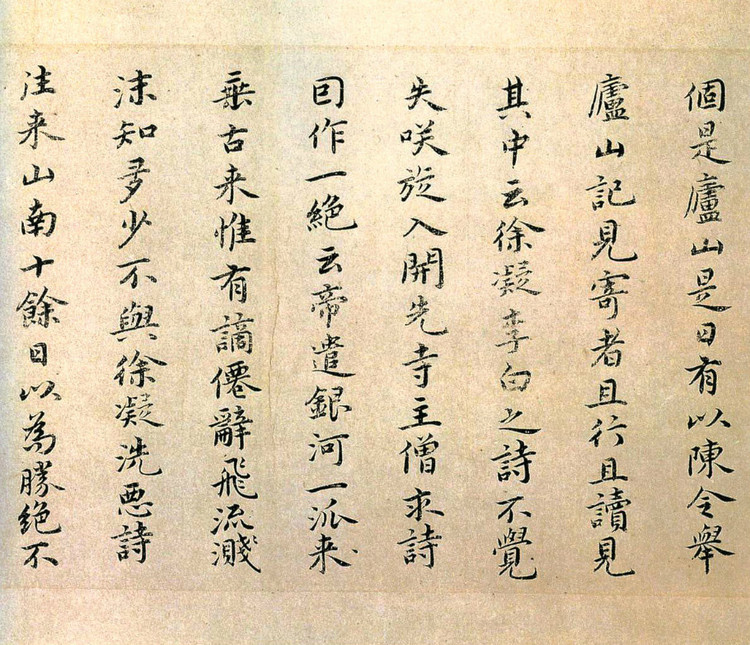 個是廬山是日有以陳令舉
廬山記見寄者且行且讀見
其中云徐凝李白之詩不覺
失咲旋入開先寺主僧求詩
囙作一絶云帝遣銀河一派来
垂古来惟有謫僊辭飛流濺
沫知多少不與徐凝洗悪詩
往来山南十餘日以為勝絶不